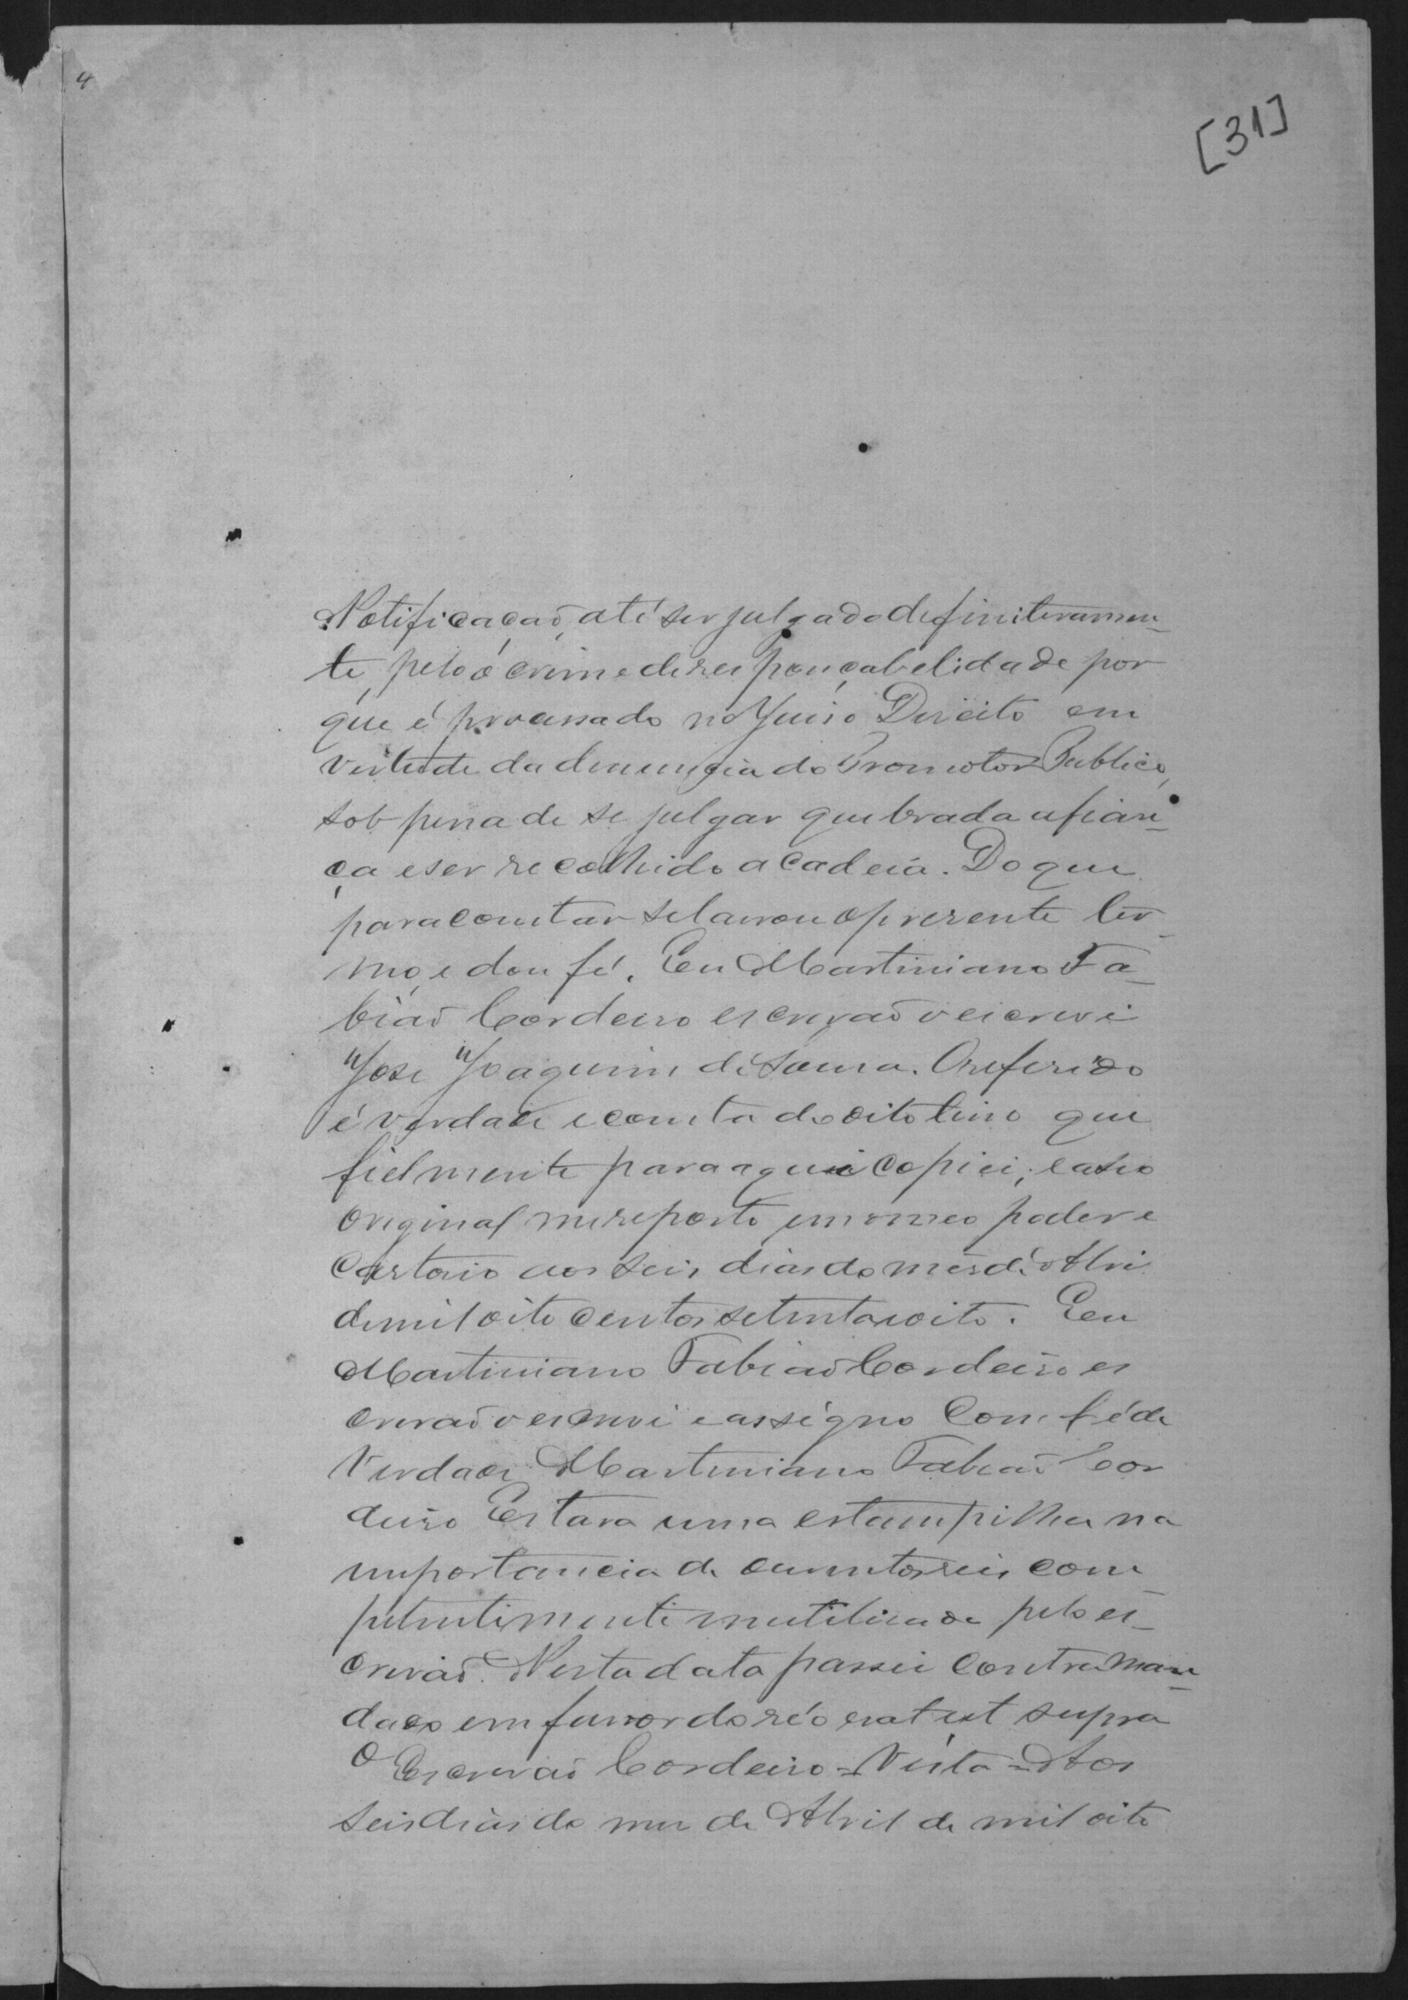 4
[31]
Notificação, até ser julgado definitivamen-
te, pelo o crime de responçabelidade por
que é processado no Juiso Direito em
virtude da denuncia do Promotor Publico,
sob pena de se julgar quebrada a fian-
ça e ser recolhido a cadeia. Do que
para constar se lavrou o presente ter-
mo, e dou fé. Eu Martiniano Fa-
bião Cordeiro escrivão o escrevi
José Joaquim de Sousa. O referido
é verdade e consta do dito livro que
fielmente para aqui copiei, e a seo
original me reporto, em meo poder e
Cartorio aos seis dias do mês de Abril
de mil oito centos setenta e oito. Eu
Martiniano Fabião Cordeiro es
crivão o escrevi e assigno Com fé de
Verdade Martiniano Fabião Cor
deiro Estava uma estampilha na
importancia de dusentos reis com
petentimente inutilisada pelo es-
crivão. Nesta data passei Contra Man-
dado em favor do réo erat ut supra
O Escrivão Cordeiro = Vista = Aos
seis dias do mes de Abril de mil oito